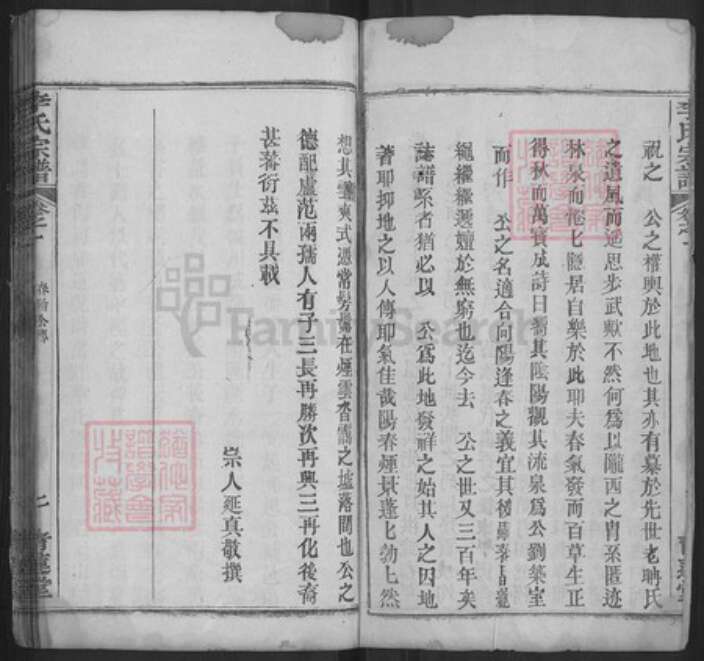 祝之　公之權輿於此地也其亦有慕於先世老聃氏
之遺風而遥思步武歟不然何爲以隴西之冑系匿迹
林泉而惓七隱居自樂於此耶夫春氣發而百草生正
得秋而萬寳成詩曰相其陰陽觀其流泉爲公劉築室
而作　公之名適合向陽逢春之義宜其後
繩繼繼遞嬗於無窮也迄今去　公之世又三百年矣
誌譜系者猶必以　公爲此地發祥之始其人之因地
著耶抑地之以人傳耶氣佳哉陽春煙景蓬七勃上然
想其靈爽式憑常髣髴在煙雲杳靄之墟落間也公之
德配盧范兩孺人有子三長再勝次再興三再化後裔
甚蕃衍茲不具載
崇人延真敬撰
李氏宗譜
卷之一
七
青蓮堂
李氏宗譜
卷之一
青蓮堂
FamilySearch